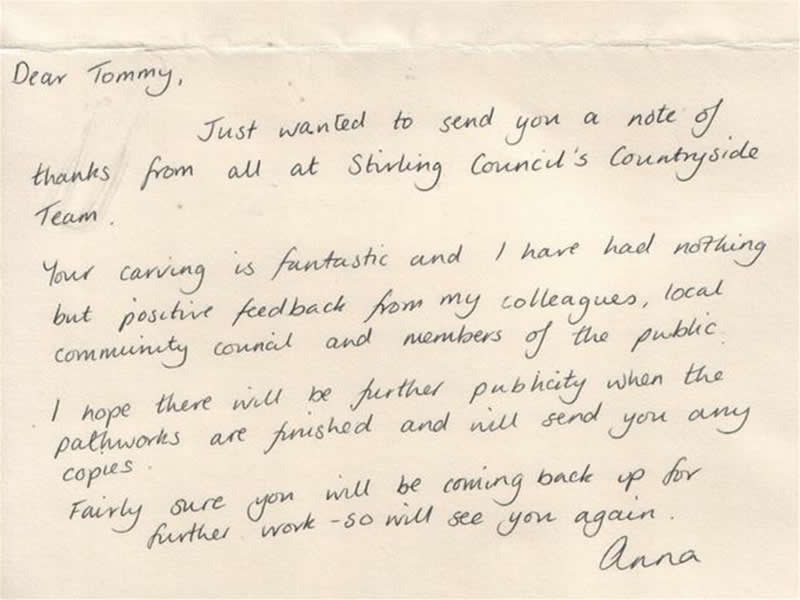 Dear Tommy,
Just wanted to send you a note of
thanks from all at Stirling Council's Countryside
Team.
Your carving is fantastic and I have had nothing
but positive feedback from my colleagues, local
community council and members of the public.
I hope there will be further publicity when the
pathworks are finished and will send you any
copies.
Fairly sure you will be coming back up for
further work - so will see you again.
Anna